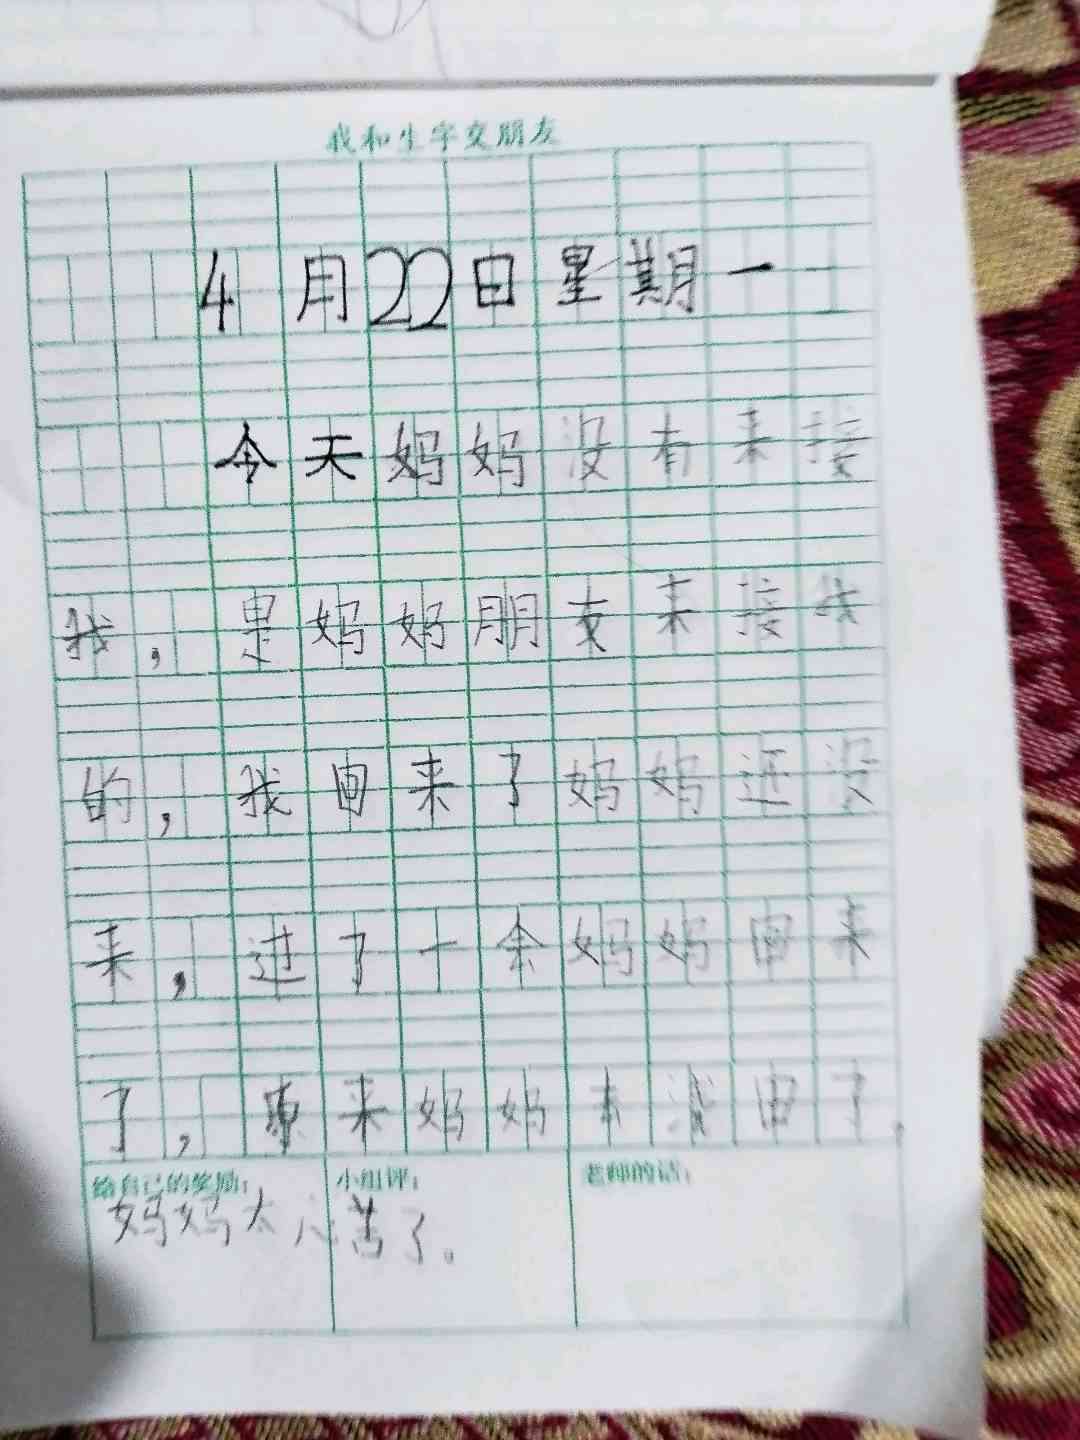 我和生字交朋友
4月22日星期一
今天妈妈没有来接
我，是妈妈朋友来接我
的，我回来了妈妈还没
来，过了一余妈妈回来
了，原来妈妈去 回了.
给自己的奖励：
小组评：
老师的话：
妈妈太心苦了。